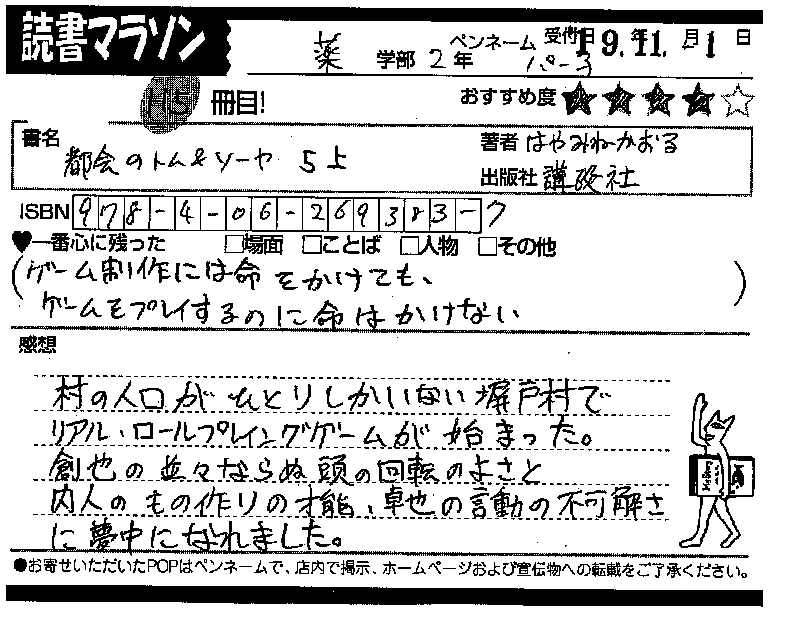 読書マラソン
薬 学部 2年 ペンネーム パーチ 受付日 19.年11.月1日
115 冊目! おすすめ度 ★★★★☆
書名 都会のトム&ソーヤ 5上
著者 はやみねかおる
出版社 講談社
ISBN 978-4-06-269383-7
♥一番心に残った □場面 □ことば □人物 □その他
(ゲーム制作には命をかけても、
ゲームをプレイするのに命はかけない)
感想
村の人口がひとりしかいない塀戸村で
リアル・ロールプレイングゲームが始まった。
創也の並々ならぬ頭の回転のよさと
内人のもの作りの才能、卓也の言動の不可解さ
に夢中になれました。
●お寄せいただいたPOPはペンネームで、店内で掲示、ホームページおよび宣伝物への転載をご了承ください。